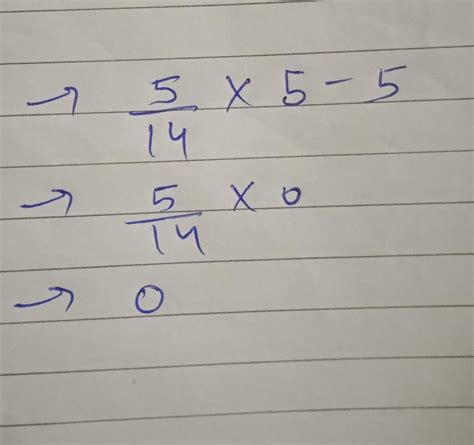 → 5/14 × 5 - 5
→ 5/14 × 0
→ 0